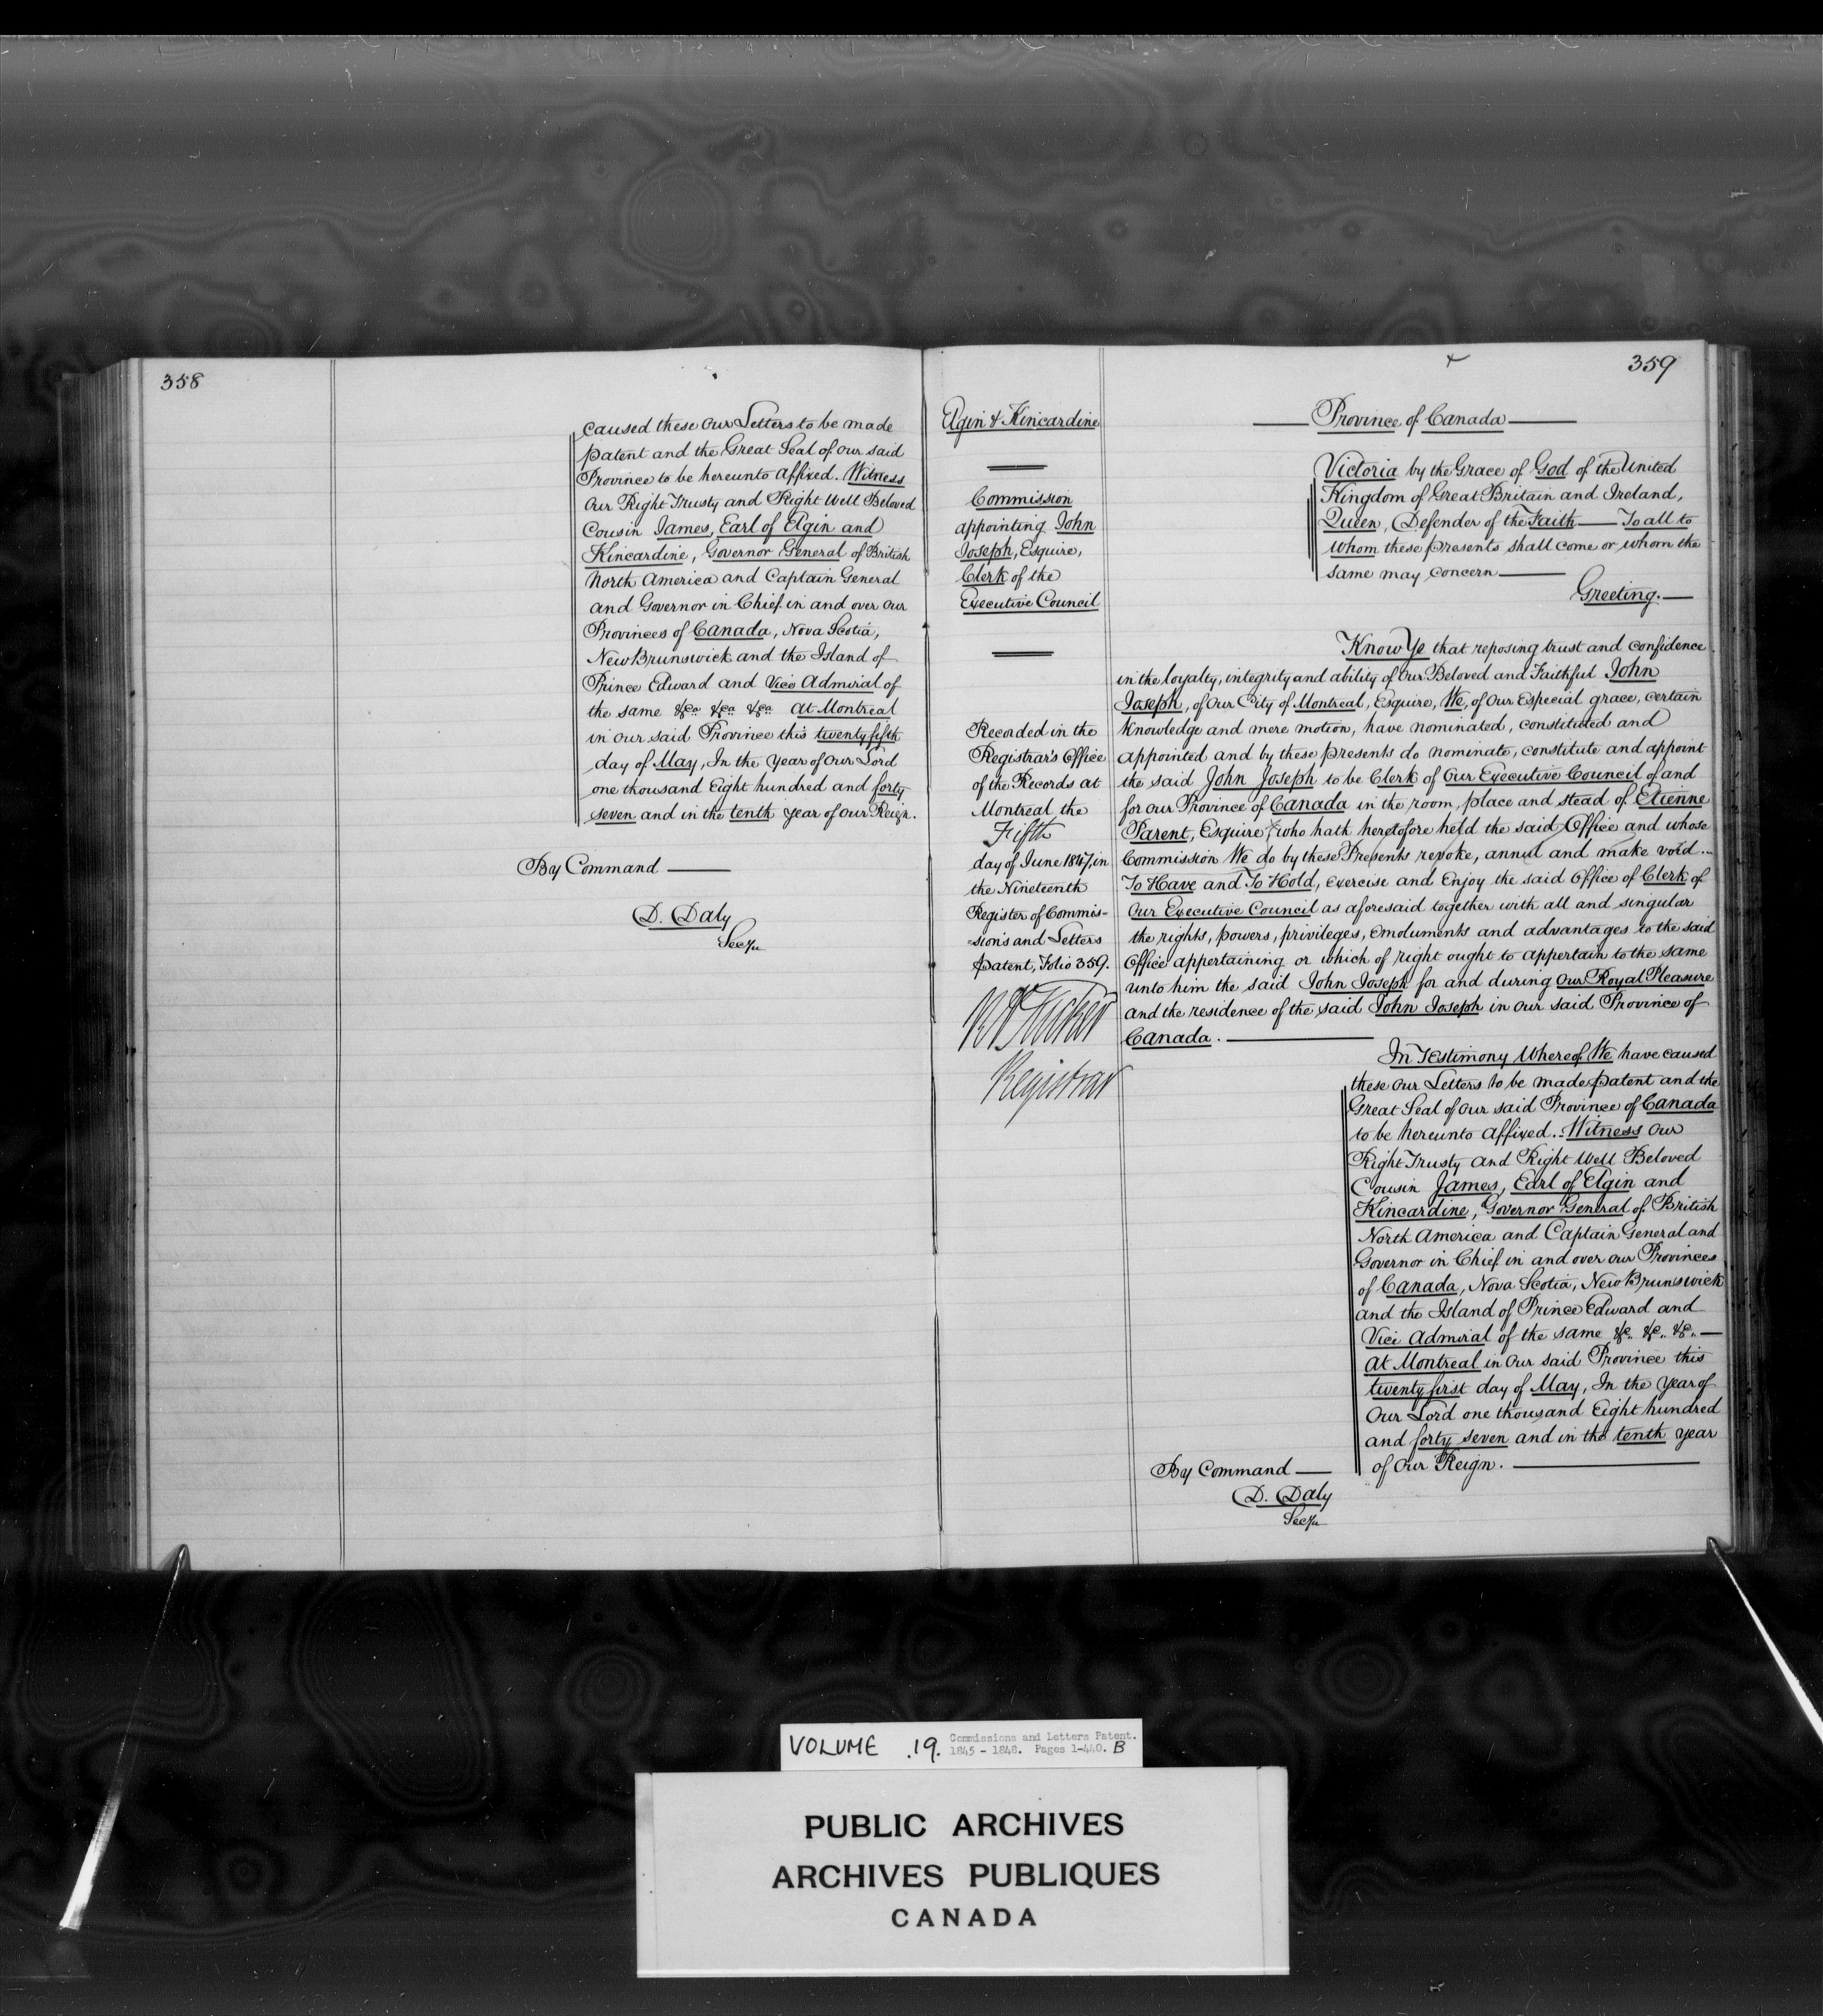 358
caused these Our Letters to be made
patent and the Great Seal of Our said
Province to be hereunto affixed. Witness
Our Right Trusty and Right Well Beloved
Cousin James, Earl of Elgin and
Kincardine, Governor General of British
North America and Captain General
and Governor in Chief in and over our
Provinces of Canada, Nova Scotia,
New Brunswick and the Island of
Prince Edward and Vice Admiral of
the same &ca &ca &ca At Montreal
in our said Province this twenty fifth
day of May, In the Year of Our Lord
one thousand Eight hundred and forty
seven and in the tenth year of Our Reign.
By Command
D. Daly
Secy
359
Elgin & Kincardine
Commission
appointing John
Joseph, Esquire,
Clerk of the
Executive Council
Recorded in the
Registrar's Office
of the Records at
Montreal the
Fifth
day of June 1847, in
the Nineteenth
Register of Commis-
-sions and Letters
Patent, Folio 359.
Registrar
Province of Canada
Victoria by the Grace of God of the United
Kingdom of Great Britain and Ireland,
Queen, Defender of the Faith — To all to
whom these presents shall come or whom the
same may concern
Greeting.
Know Ye that reposing trust and confidence
in the loyalty, integrity and ability of Our Beloved and Faithful John
Joseph, of Our City of Montreal, Esquire, We, of Our Especial grace, certain
knowledge and mere motion, have nominated, constituted and
appointed and by these presents do nominate, constitute and appoint
the said John Joseph to be Clerk of Our Executive Council of and
for our Province of Canada in the room, place and stead of Etienne
Parent, Esquire, who hath heretofore held the said Office and whose
Commission We do by these Presents revoke, annul and make void...
To Have and To Hold, exercise and Enjoy the said Office of Clerk of
Our Executive Council as aforesaid together with all and singular
the rights, powers, privileges, emoluments and advantages to the said
Office appertaining or which of right ought to appertain to the same
unto him the said John Joseph for and during Our Royal Pleasure
and the residence of the said John Joseph in our said Province of
Canada.
In Testimony Whereof We have caused
these Our Letters to be made patent and the
Great Seal of our said Province of Canada
to be hereunto affixed. Witness our
Right Trusty and Right Well Beloved
Cousin James, Earl of Elgin and
Kincardine, Governor General of British
North America and Captain General and
Governor in Chief in and over our Provinces
of Canada, Nova Scotia, New Brunswick
and the Island of Prince Edward and
Vice Admiral of the same &c. &c. &c.
At Montreal in our said Province this
twenty first day of May, In the Year of
Our Lord one thousand Eight hundred
and forty seven and in the tenth year
of Our Reign.
By Command
D. Daly
Secy
VOLUME .19. Commissions and Letters Patent.
1845 - 1848. Pages 1-440. B
PUBLIC ARCHIVES
ARCHIVES PUBLIQUES
CANADA